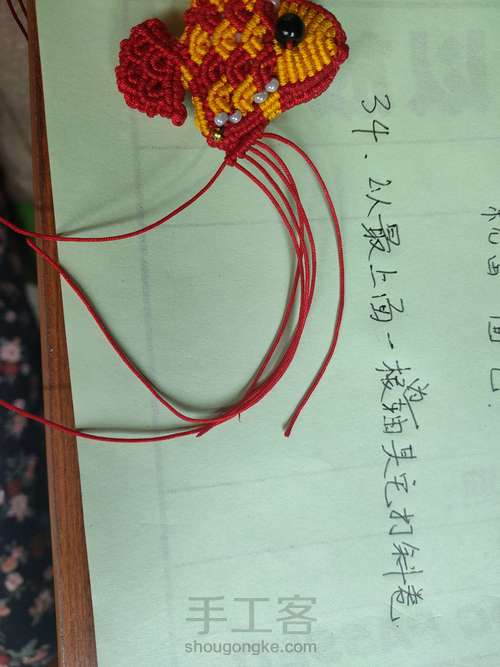 34. 以最上面一根为轴其它打斜卷.
手工客
shougongke.com